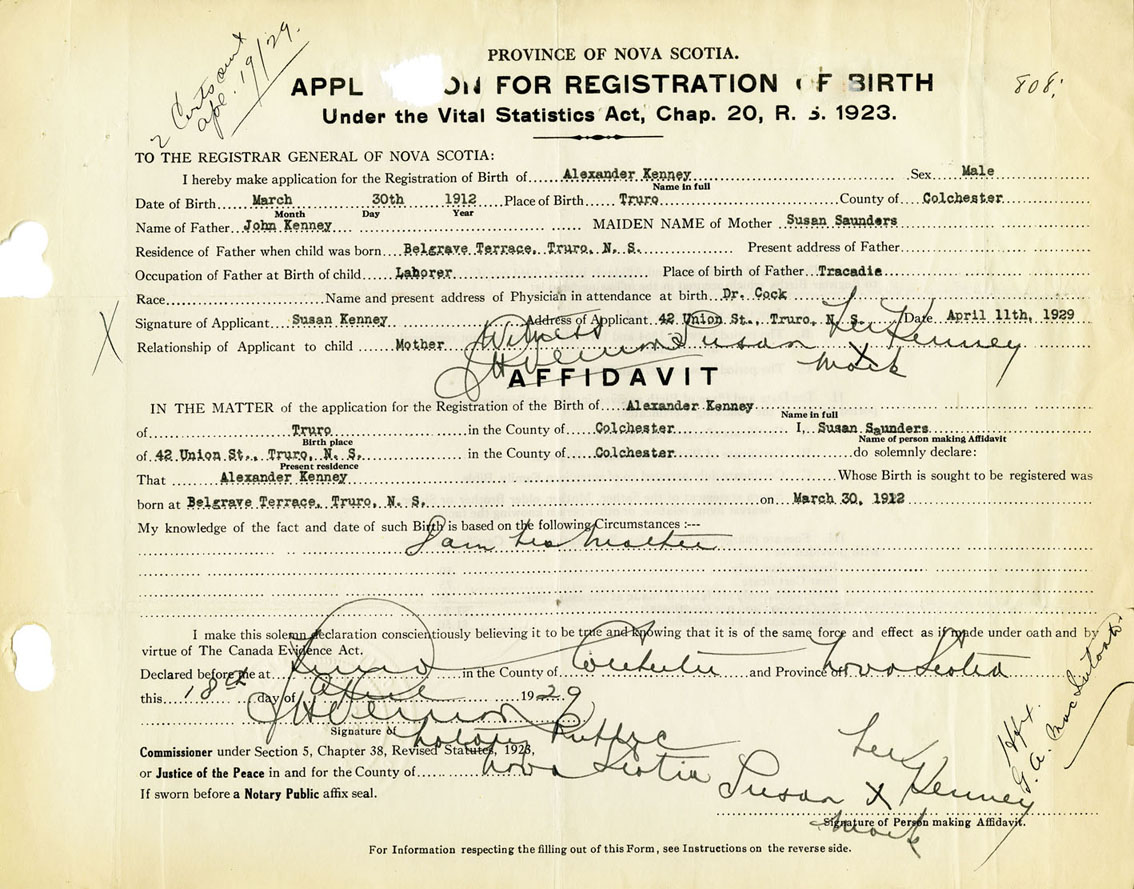 2 Certs sent
Apl. 19/29.
PROVINCE OF NOVA SCOTIA.
808.
APPL ON FOR REGISTRATION OF BIRTH
Under the Vital Statistics Act, Chap. 20, R. S. 1923.
TO THE REGISTRAR GENERAL OF NOVA SCOTIA:
I hereby make application for the Registration of Birth of Alexander Kenney Sex Male
Name in full
Date of Birth March 30th 1912 Place of Birth Truro County of Colchester
Month Day Year
Name of Father John Kenney MAIDEN NAME of Mother Susan Saunders
Residence of Father when child was born Belgrave Terrace, Truro, N. S. Present address of Father
Occupation of Father at Birth of child Laborer Place of birth of Father Tracadie
Race Name and present address of Physician in attendance at birth Dr. Cock
X Signature of Applicant Susan Kenney Address of Applicant 42 Union St., Truro, N. S. Date April 11th, 1929
Relationship of Applicant to child Mother
Witness her
JH Vernon Susan X Kenney
mark
AFFIDAVIT
IN THE MATTER of the application for the Registration of the Birth of Alexander Kenney
Name in full
of Truro in the County of Colchester I, Susan Saunders
Birth place Name of person making Affidavit
of 42 Union St., Truro, N. S. in the County of Colchester do solemnly declare:
Present residence
That Alexander Kenney Whose Birth is sought to be registered was
born at Belgrave Terrace, Truro, N. S. on March 30, 1912
My knowledge of the fact and date of such Birth is based on the following Circumstances :---
I am his Mother
I make this solemn declaration conscientiously believing it to be true and knowing that it is of the same force and effect as if made under oath and by
virtue of The Canada Evidence Act.
Declared before me at Truro in the County of Colchester and Province of Nova Scotia
this 18th day of April 1929
JH Vernon
Signature of Notary Public
Commissioner under Section 5, Chapter 38, Revised Statutes, 1923,
or Justice of the Peace in and for the County of Nova Scotia
If sworn before a Notary Public affix seal.
her
Susan X Kenney
mark
Signature of Person making Affidavit.
G. A. MacIntosh
For Information respecting the filling out of this Form, see Instructions on the reverse side.